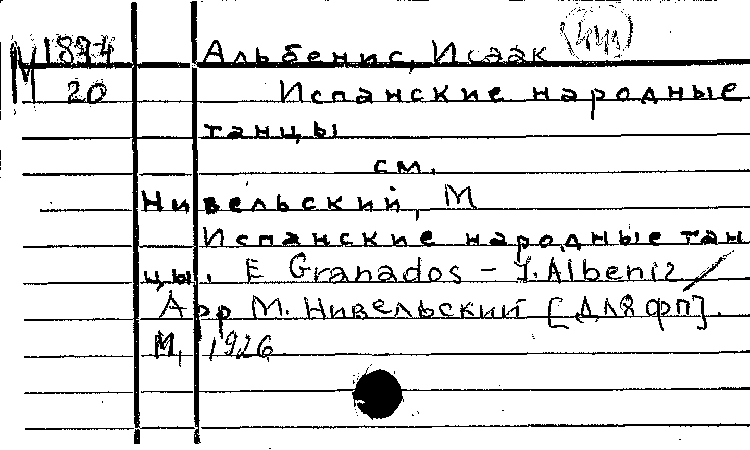 М 1874 Альбенис, Исаак
20 Испанские народные
танцы
см.
Нивельский, М
Испанские народные тан
цы. E Granados – I. Albeniz /
Арр М. Нивельский [для фп].
М, 1926